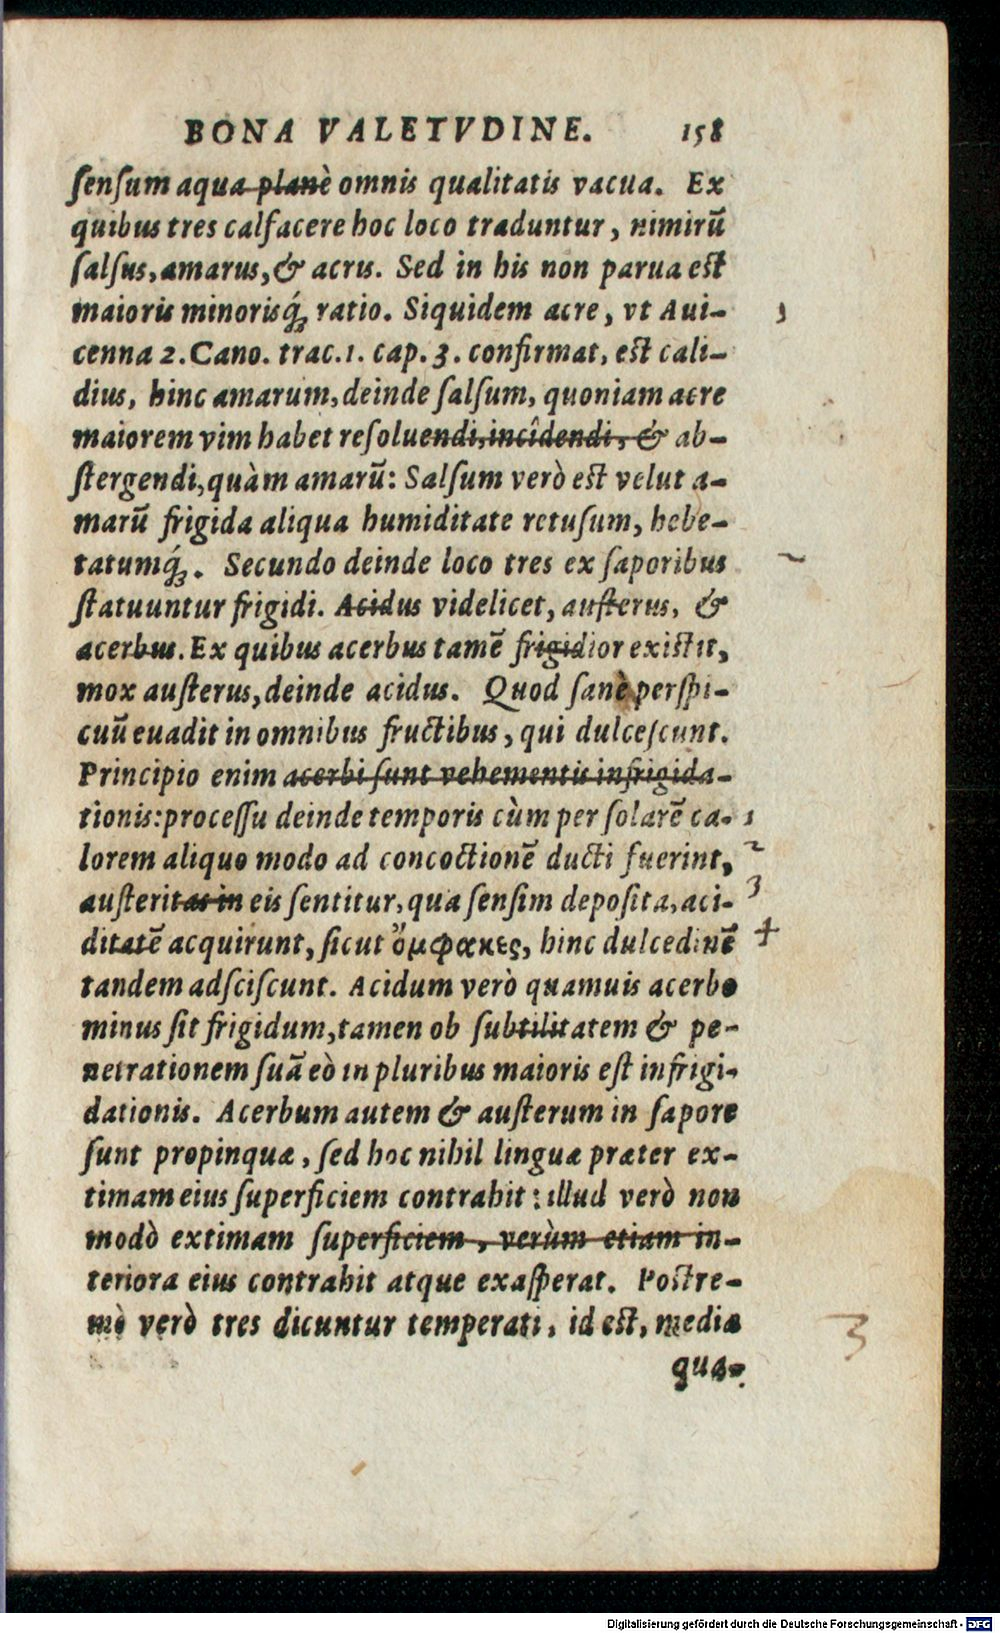 BONA VALETVDINE. 158
ſenſum aqua planè omnis qualitatis vacua. Ex
quibus tres calfacere hoc loco traduntur, nimirũ
ſalſus, amarus, & acris. Sed in his non parua est
maioris minorisq́; ratio. Siquidem acre, vt Aui-
cenna 2. Cano. trac. 1. cap. 3. confirmat, est cali-
dius, hinc amarum, deinde ſalſum, quoniam acre
maiorem vim habet reſoluendi, incîdendi, & ab-
ſtergendi, quàm amarũ: Salſum verò est velut a-
marũ frigida aliqua humiditate retuſum, hebe-
tatumq́;. Secundo deinde loco tres ex ſaporibus
ſtatuuntur frigidi. Acidus videlicet, auſterus, &
acerbus. Ex quibus acerbus tamẽ frigidior existit,
mox auſterus, deinde acidus. Quod ſanè perſpi-
cuũ euadit in omnibus fructibus, qui dulceſcunt.
Principio enim acerbi ſunt vehementis infrigida-
tionis: proceſſu deinde temporis cùm per ſolarẽ ca- 1
lorem aliquo modo ad concoctionẽ ducti fuerint, 2
auſteritas in eis ſentitur, qua ſenſim depoſita, aci- 3
ditatẽ acquirunt, ſicut ὄμφακες, hinc dulcedinẽ 4
tandem adſciſcunt. Acidum verò quamuis acerbo
minus ſit frigidum, tamen ob ſubtilitatem & pe-
netrationem ſuã eò in pluribus maioris eſt infrigi-
dationis. Acerbum autem & auſterum in ſapore
ſunt propinqua, ſed hoc nihil linguæ præter ex-
timam eius ſuperficiem contrahit: illud verò non
modò extimam ſuperficiem, verùm etiam in-
teriora eius contrahit atque exaſperat. Postre-
mò verò tres dicuntur temperati, id est, mediæ
3
qua-
Digitalisierung gefördert durch die Deutsche Forschungsgemeinschaft - DFG